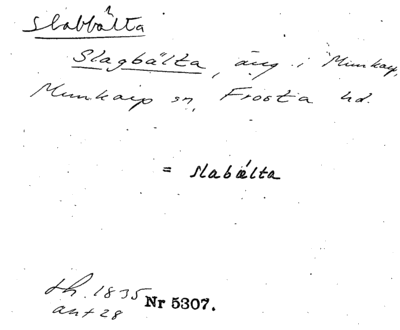 slabbälta
Slagbälta, äng i Munkarp,
Munkarp sn, Frosta hd.
= slabælta
sh. 1835
ant 28
Nr 5307.